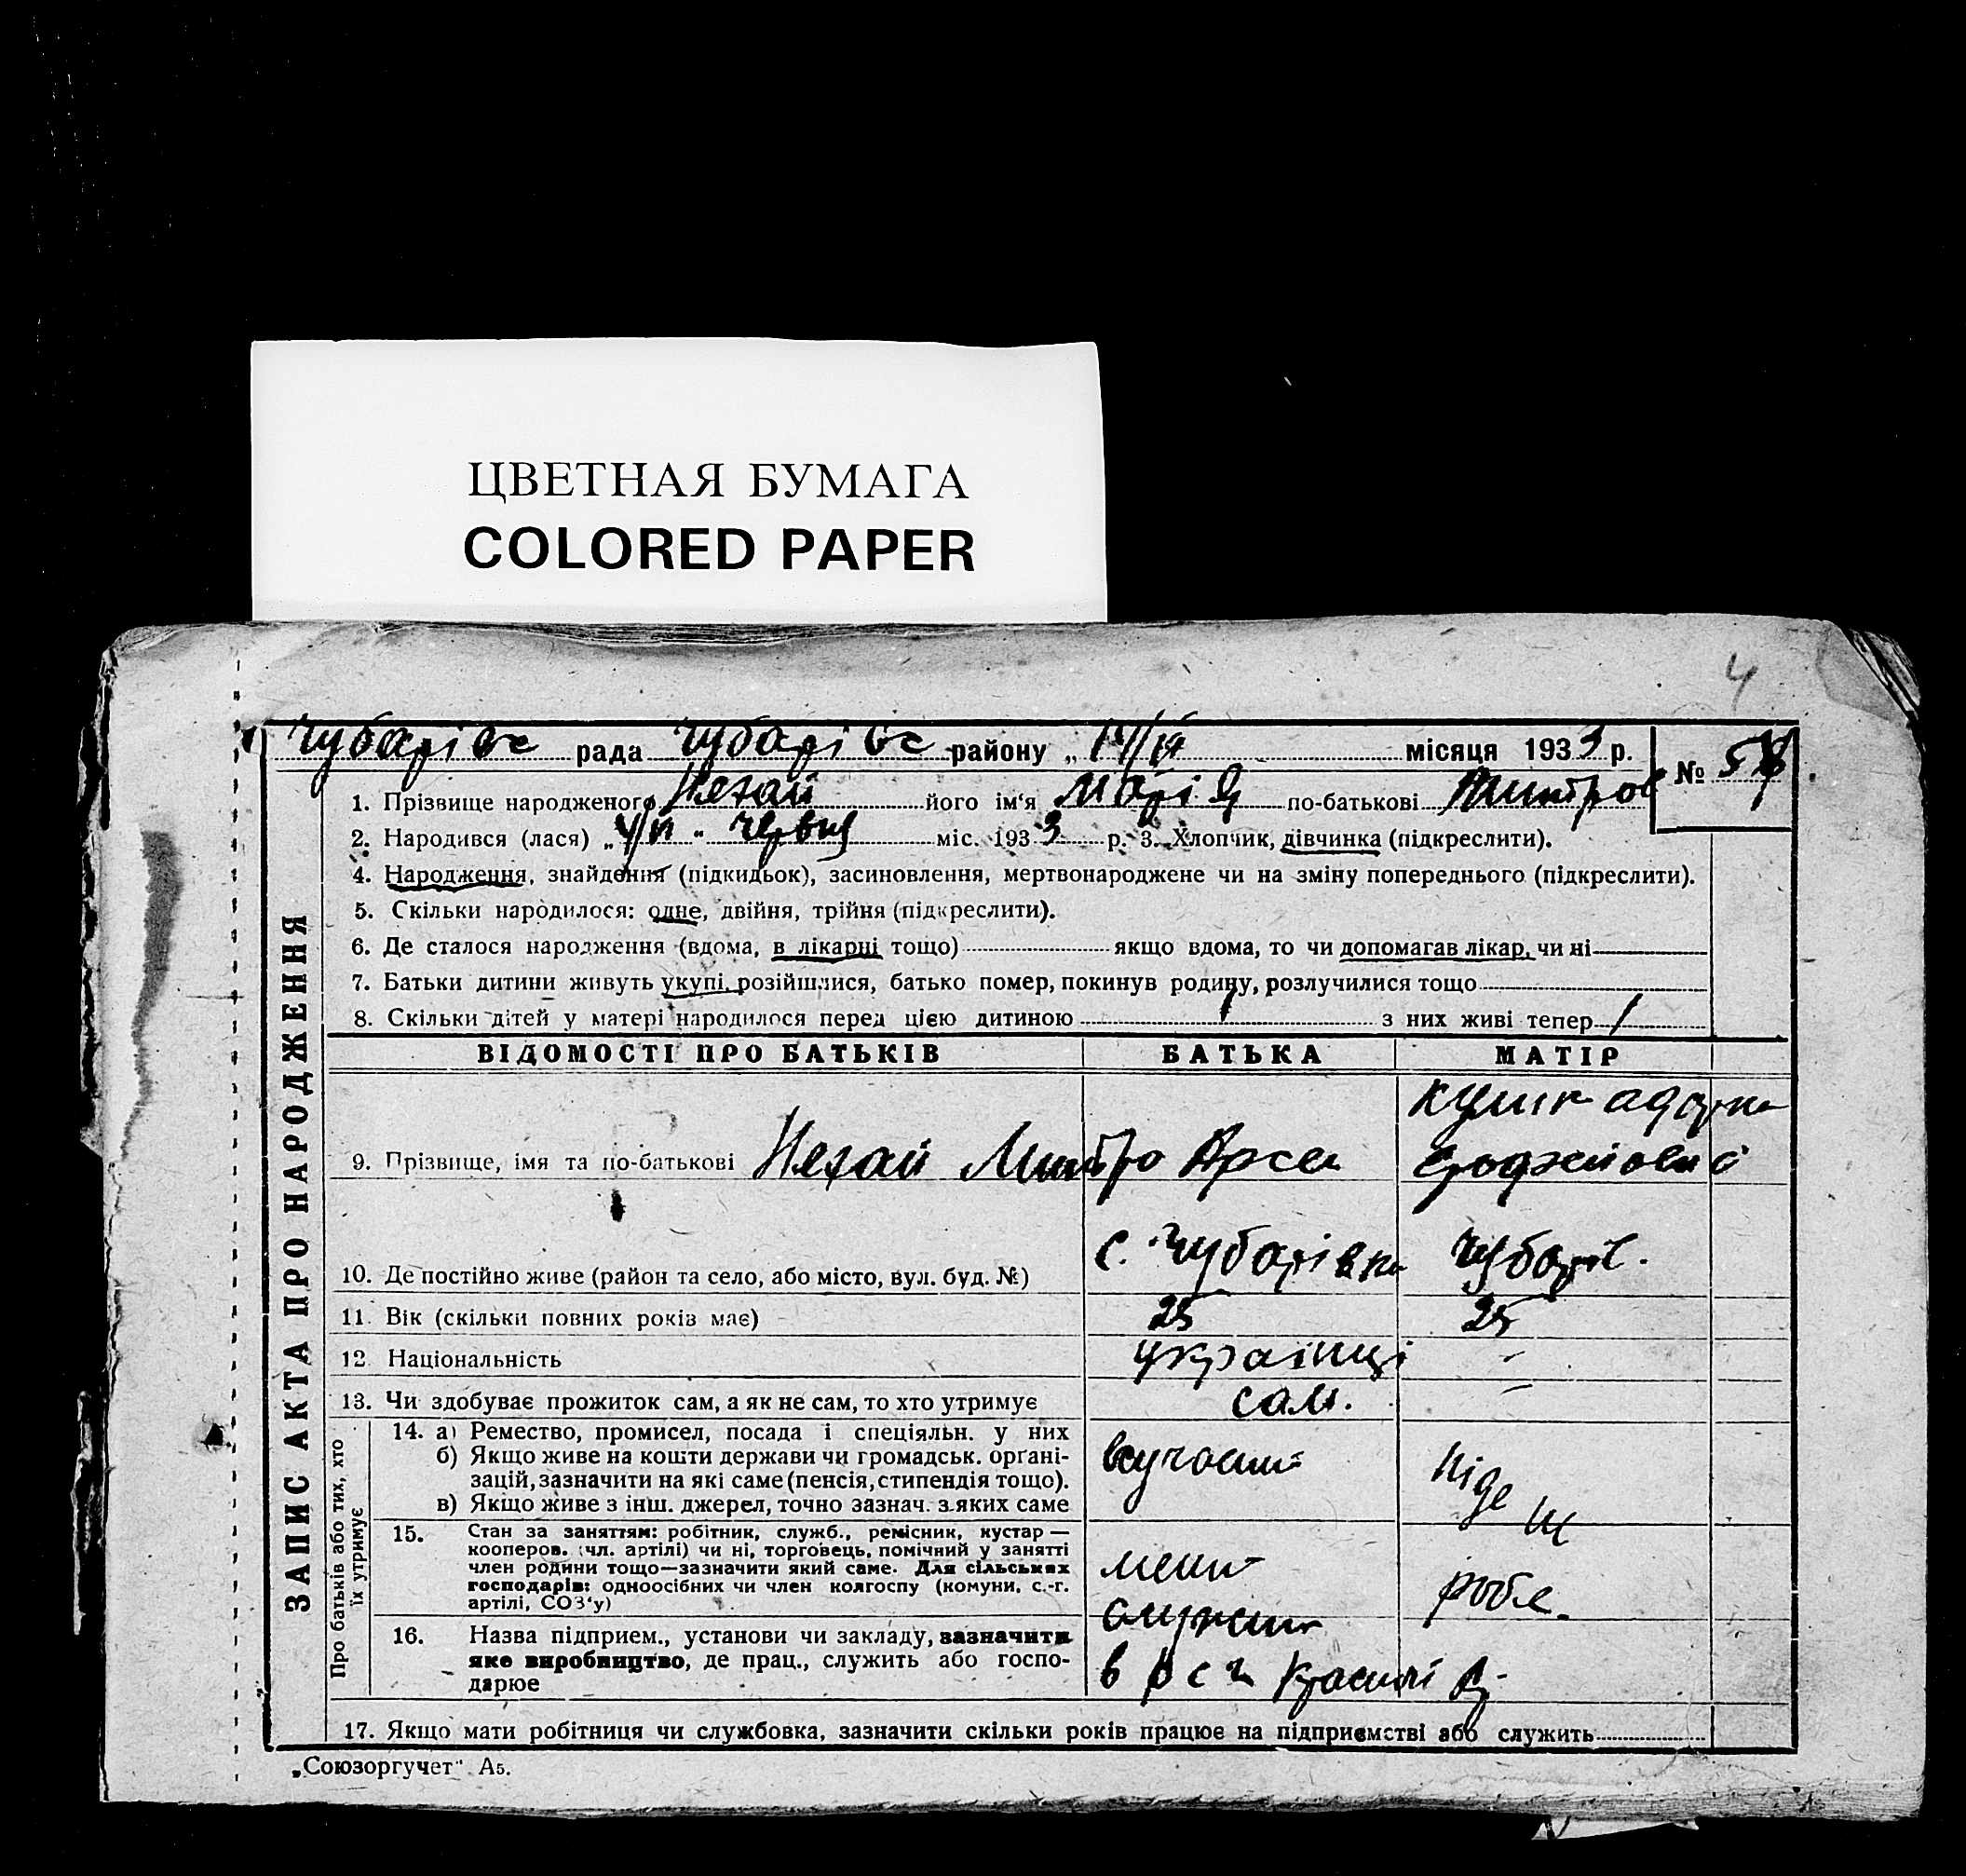 ЦВЕТНАЯ БУМАГА
COLORED PAPER
4
Чубарівс рада Чубарівс району „ місяця 1933 р.
№
1. Прізвище народженого Нехай його ім'я Марія по-батькові Митров
2. Народився (лася) „ " червня міс. 1933 р. 3. Хлопчик, дівчинка (підкреслити).
4. Народження, знайдення (підкидьок), засиновлення, мертвонароджене чи на зміну попереднього (підкреслити).
5. Скільки народилося: одне, двійня, трійня (підкреслити).
6. Де сталося народження (вдома, в лікарні тощо) якщо вдома, то чи допомагав лікар, чи ні
7. Батьки дитини живуть укупі, розійшлися, батько помер, покинув родину, розлучилися тощо
8. Скільки дітей у матері народилося перед цією дитиною 1 з них живі тепер 1
ЗАПИС АКТА ПРО НАРОДЖЕННЯ
ВІДОМОСТІ ПРО БАТЬКІВ БАТЬКА МАТІР
9. Прізвище, імя та по-батькові Нехай Митро Арсен
10. Де постійно живе (район та село, або місто, вул. буд. №) с. Чубарівка Чубарів.
11. Вік (скільки повних років має) 25 25
12 Національність українці -
13. Чи здобуває прожиток сам, а як не сам, то хто утримує сам. -
Про батьків або тих, хто їх утримує
14. а) Ремество, промисел, посада і спеціяльн. у них
б) Якщо живе на кошти держави чи громадськ. органі-
зацій, зазначити на які саме (пенсія, стипендія тощо).
в) Якщо живе з інш. джерел, точно зазнач. з яких саме
15. Стан за заняттям: робітник, служб., ремісник, кустар —
кооперов. (чл. артілі) чи ні, торговець, помічний у занятті
член родини тощо—зазначити який саме. Для сільських
господарів: одноосібних чи член колгоспу (комуни, с.-г.
артілі, СОЗ'у)
16. Назва підприєм., установи чи закладу, зазначити
яке виробництво, де прац., служить або госпо-
дарює
17. Якщо мати робітниця чи службовка, зазначити скільки років працює на підприємстві або служить
„Союзоргучет" А5.